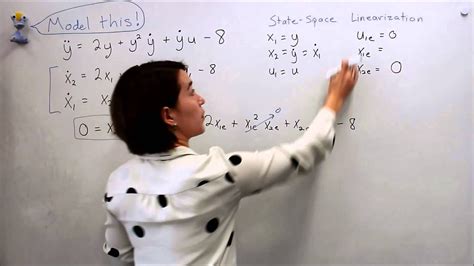 Model this!
ÿ = 2y + y² ẏ + ẏu - 8
ẋ₂ = 2x₁ - 8
ẋ₁ =
0 = 2x₁ₑ + x₁ₑ² x₂ₑ + x₂ₑ - 8
0
State-Space
x₁ = y
x₂ = ẏ = ẋ₁
u₁ = u
Linearization
u₁ₑ = 0
x₁ₑ =
x₂ₑ = 0